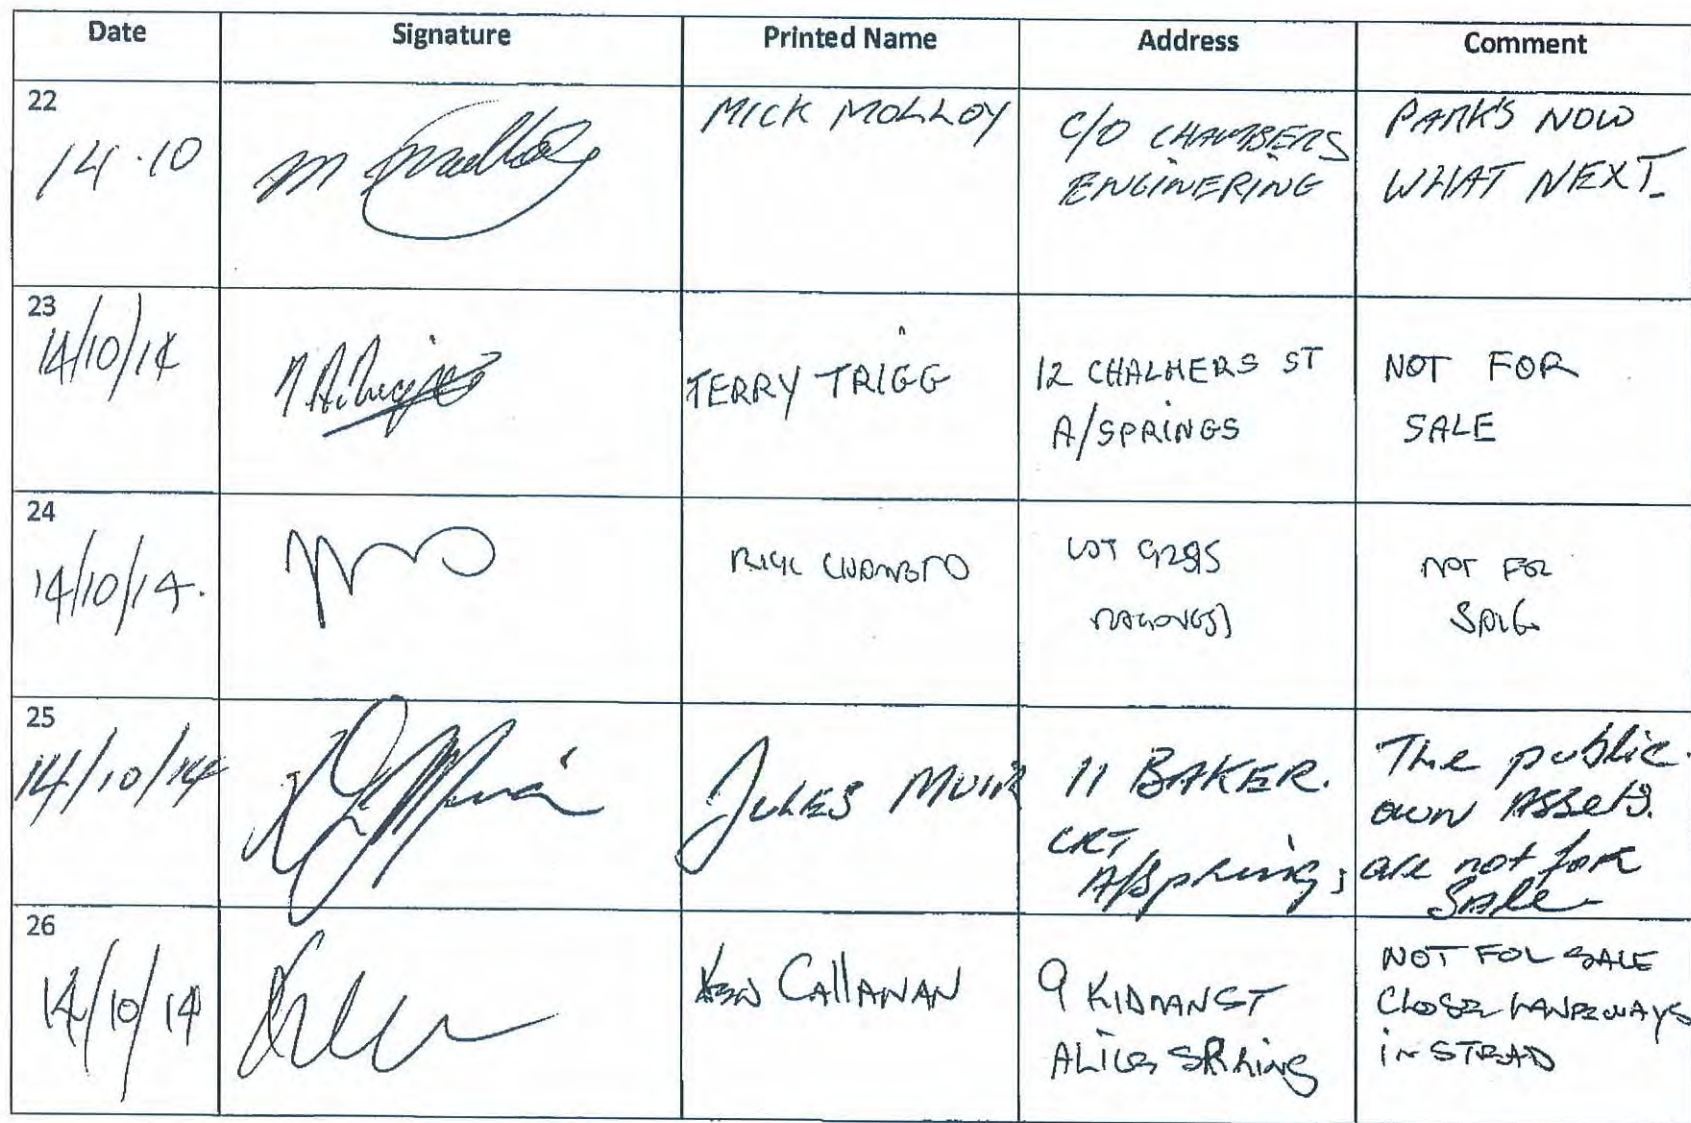 Date Signature Printed Name Address Comment
22
14.10
MICK MOLLOY
C/O CHAMBERS
ENGINERING
PARKS NOW
WHAT NEXT.
23
14/10/14
TERRY TRIGG
12 CHALMERS ST
A/SPRINGS
NOT FOR
SALE
24
14/10/14.
LOT
NOT FOR
25
14/10/14
JULES MUIR
11 BAKER.
CRT
A/Springs
The public
own Assets.
are not for
Sale
26
14/10/14
KEN CALLANAN
9 KIDMAN ST
ALICE SPRING
NOT FOR SALE
CLOSE LANEWAYS
INSTEAD